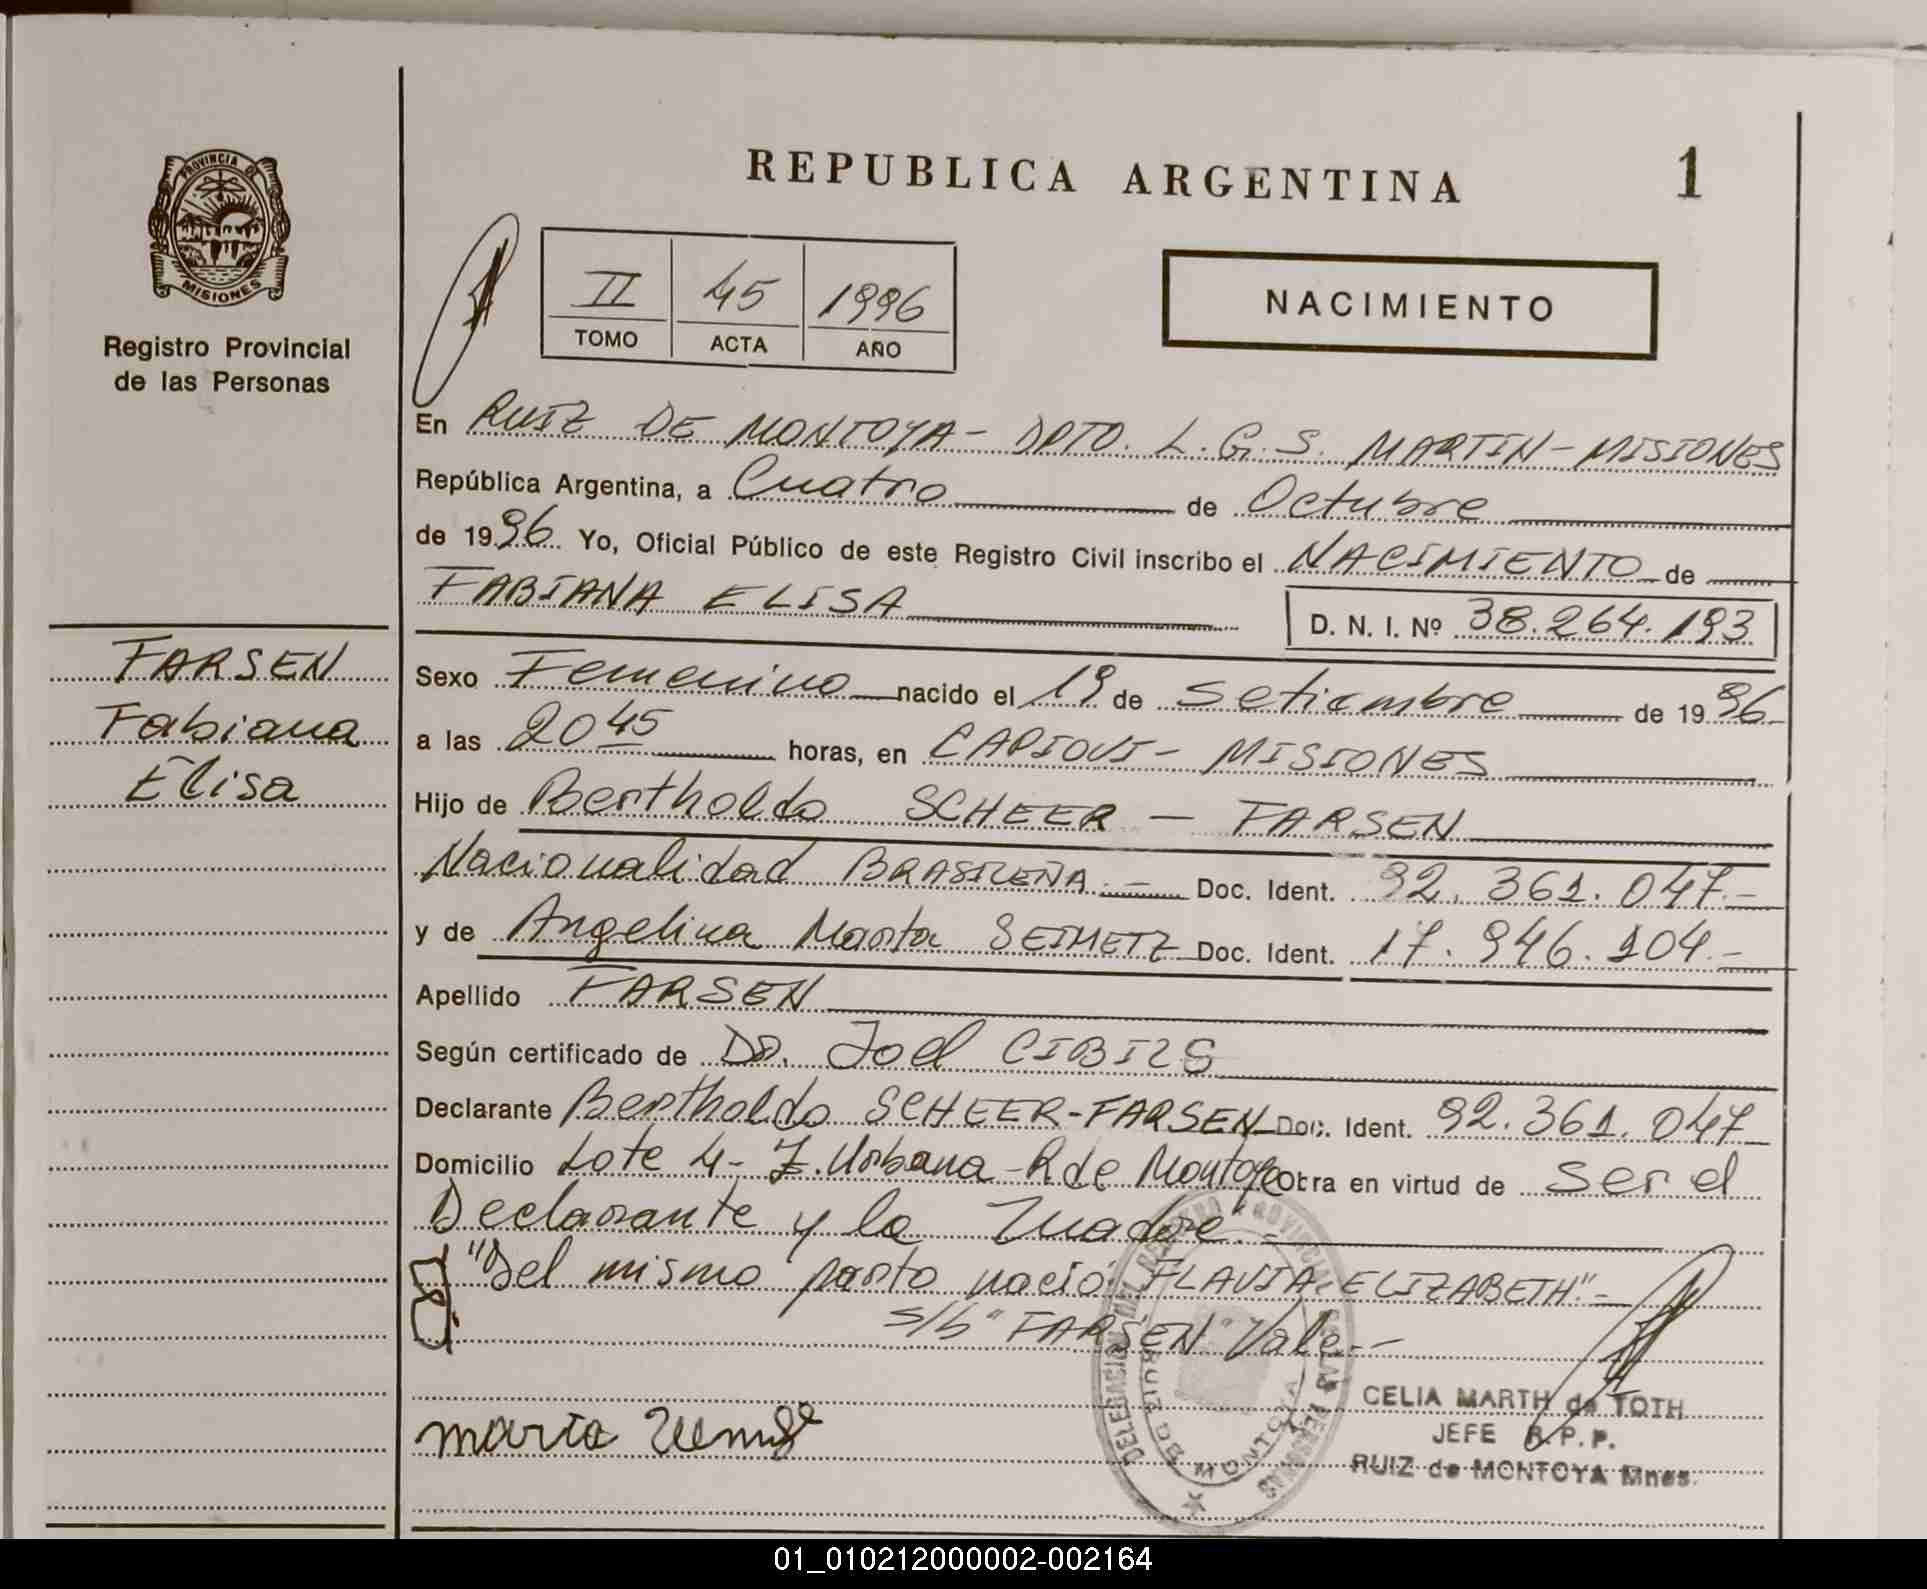 REPUBLICA ARGENTINA
1
PROVINCIA DE
MISIONES
Registro Provincial
de las Personas
II 45 1996
TOMO ACTA AÑO
NACIMIENTO
En RUIZ DE MONTOYA - DPTO. L. G. S. MARTIN - MISIONES
República Argentina, a Cuatro de Octubre
de 1996 Yo, Oficial Público de este Registro Civil inscribo el NACIMIENTO de
FABIANA ELISA
D. N. I. Nº 38.264.193
FARSEN
Fabiana
Elisa
Sexo Femenino nacido el 19 de Setiembre de 1996
a las 20 45 horas, en CAPIOVI - MISIONES
Hijo de Bertholdo SCHEER - FARSEN
Nacionalidad BRASILEÑA - Doc. Ident. 92.361.047.-
y de Angelina Marta SEIMETZ Doc. Ident. 17.946.104.-
Apellido FARSEN
Según certificado de DR. Joel CIBILS
Declarante Bertholdo SCHEER-FARSEN Doc. Ident. 92.361.047
Domicilio Lote 4 - Z. Urbana - R de Montoya Obra en virtud de ser el
Declarante y la Madre.-
"Del mismo parto nació FLAVIA ELIZABETH".-
s/b "FARSEN" Vale.-
DELEGACION DEL REGISTRO PROVINCIAL DE LAS PERSONAS
RUIZ DE MONTOYA
CELIA MARTH de TOTH
JEFE R.P.P.
RUIZ de MONTOYA Mnes.
marta
01_010212000002-002164